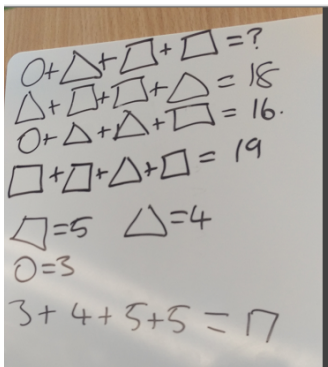 ○+△+□+□=?
△+□+□+△=18
○+△+△+□=16.
□+□+△+□=19
□=5 △=4
○=3
3+4+5+5=17